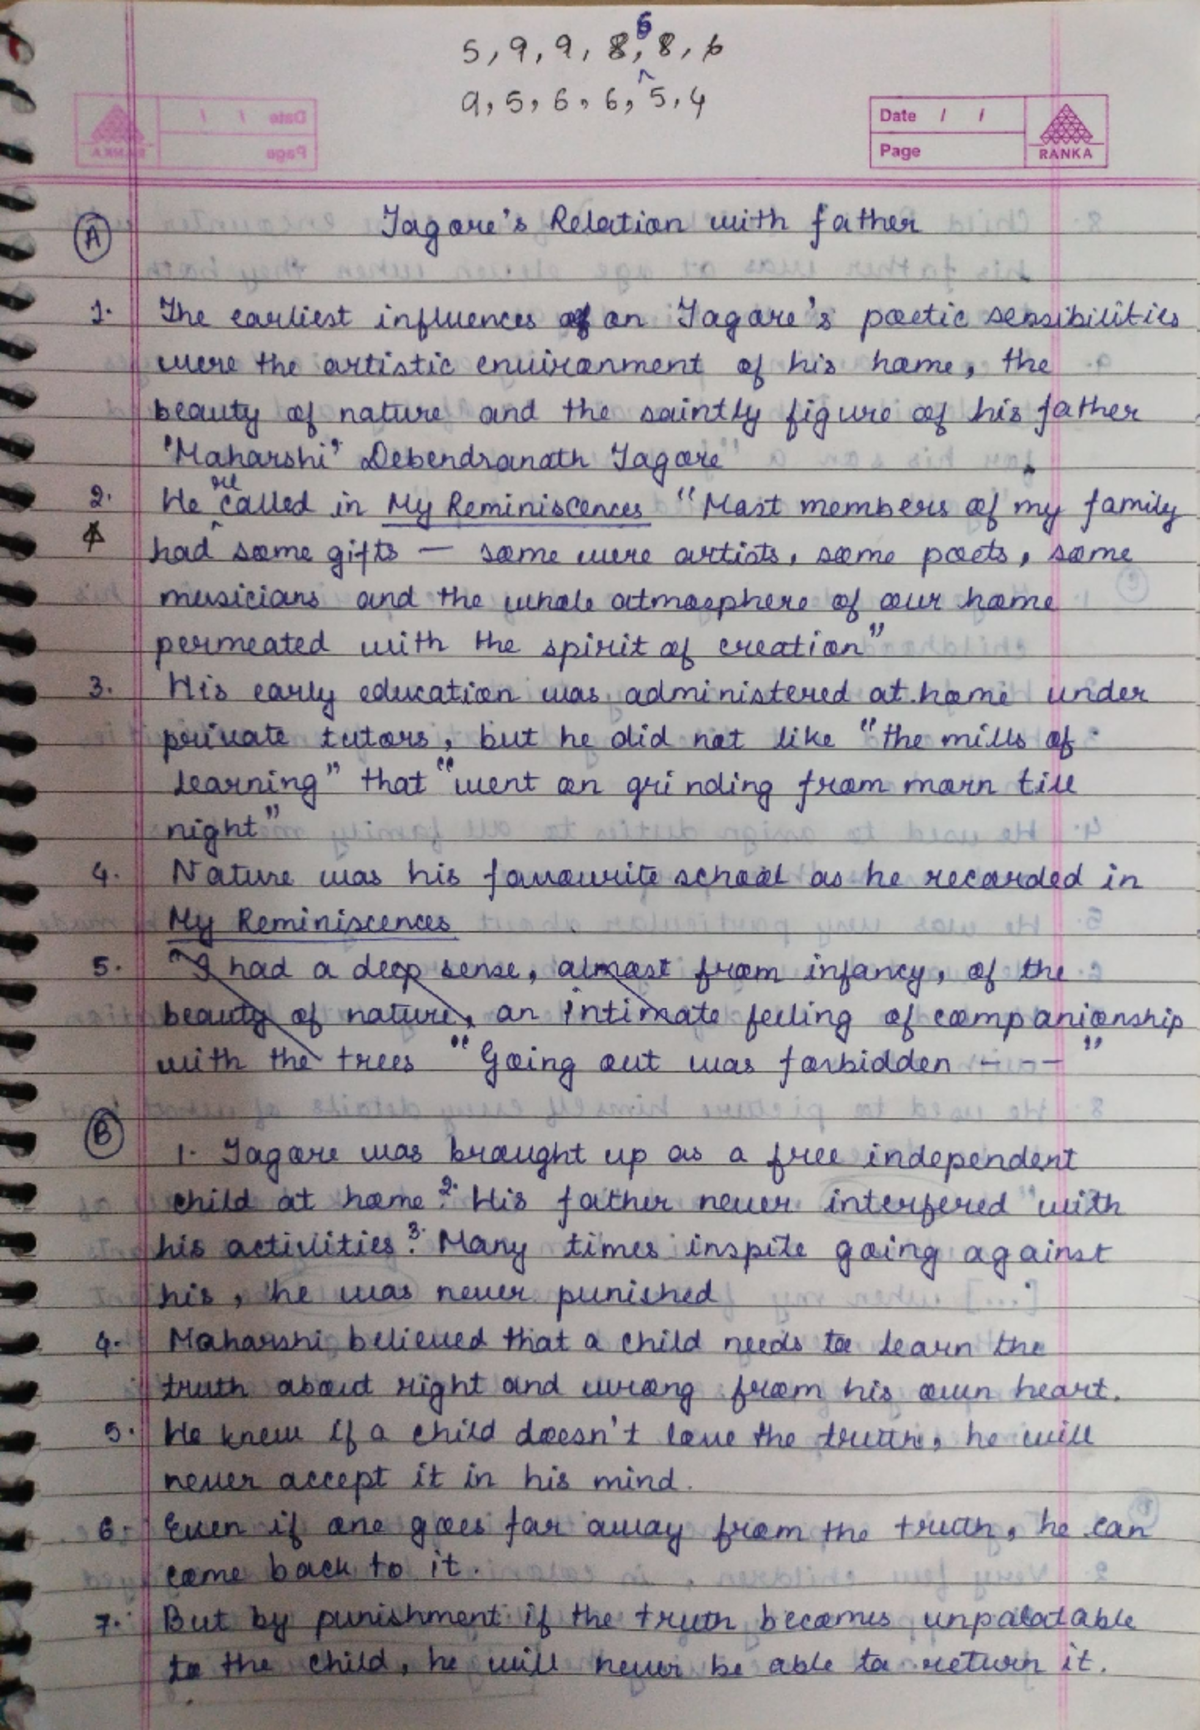 5, 9, 9, 8, 6, 8, 6
9, 5, 6, 6, 5, 4
Date / /
Page
RANKA
A Tagore's Relation with father
1. The earliest influences on Tagore's poetic sensibilities
were the artistic environment of his home, the
beauty of nature and the saintly figure of his father
'Maharshi' Debendranath Tagore
2. He recalled in My Reminiscences "Most members of my family
had some gifts — some were artists, some poets, some
musicians and the whole atmosphere of our home
permeated with the spirit of creation"
3. His early education was administered at home under
private tutors, but he did not like "the mills of
learning" that "went on grinding from morn till
night"
4. Nature was his favourite school as he recorded in
My Reminiscences
5. "I had a deep sense, almost from infancy, of the
beauty of nature, an intimate feeling of companionship
with the trees "Going out was forbidden - - - "
B 1. Tagore was brought up as a free independent
child at home. 2. His father never interfered with
his activities. 3. Many times inspite going against
his, he was never punished
4. Maharshi believed that a child needs to learn the
truth about right and wrong from his own heart.
5. He knew if a child doesn't love the truth, he will
never accept it in his mind.
6. Even if one goes far away from the truth, he can
come back to it.
7. But by punishment if the truth becomes unpalatable
to the child, he will never be able to return it.